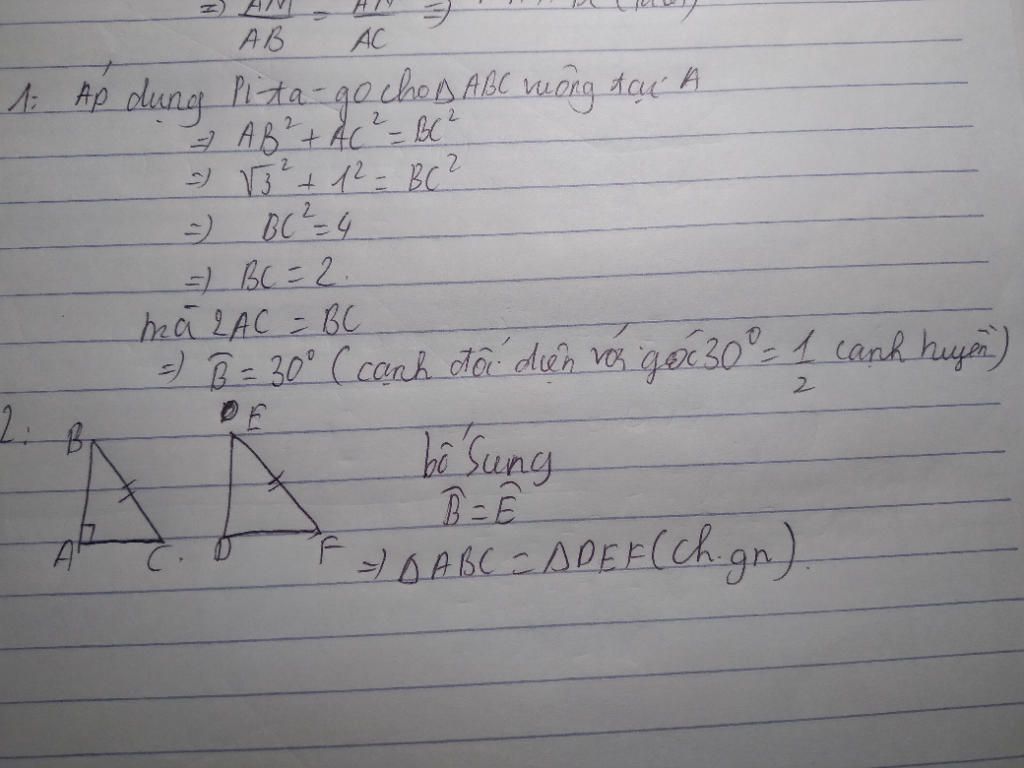 => AM = AN =>
AB AC
1: Áp dụng Pi-ta-go cho Δ ABC vuông tại A
=> AB² + AC² = BC²
=> √3² + 1² = BC²
=> BC² = 4
=> BC = 2.
mà 2AC = BC
=> B̂ = 30° (cạnh đối diện với góc 30° = 1/2 cạnh huyền)
2: B E bổ sung
B̂ = Ê
A C. D F => Δ ABC = Δ DEF (ch.gn).